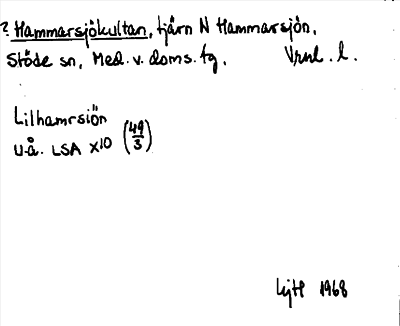 ? Hammarsjökultan, tjärn N Hammarsjön,
Stöde sn, Med. v. doms. tg. Vrnl. l.
Lilhamrsiön
U.å. LSA X10 (49/3)
1968